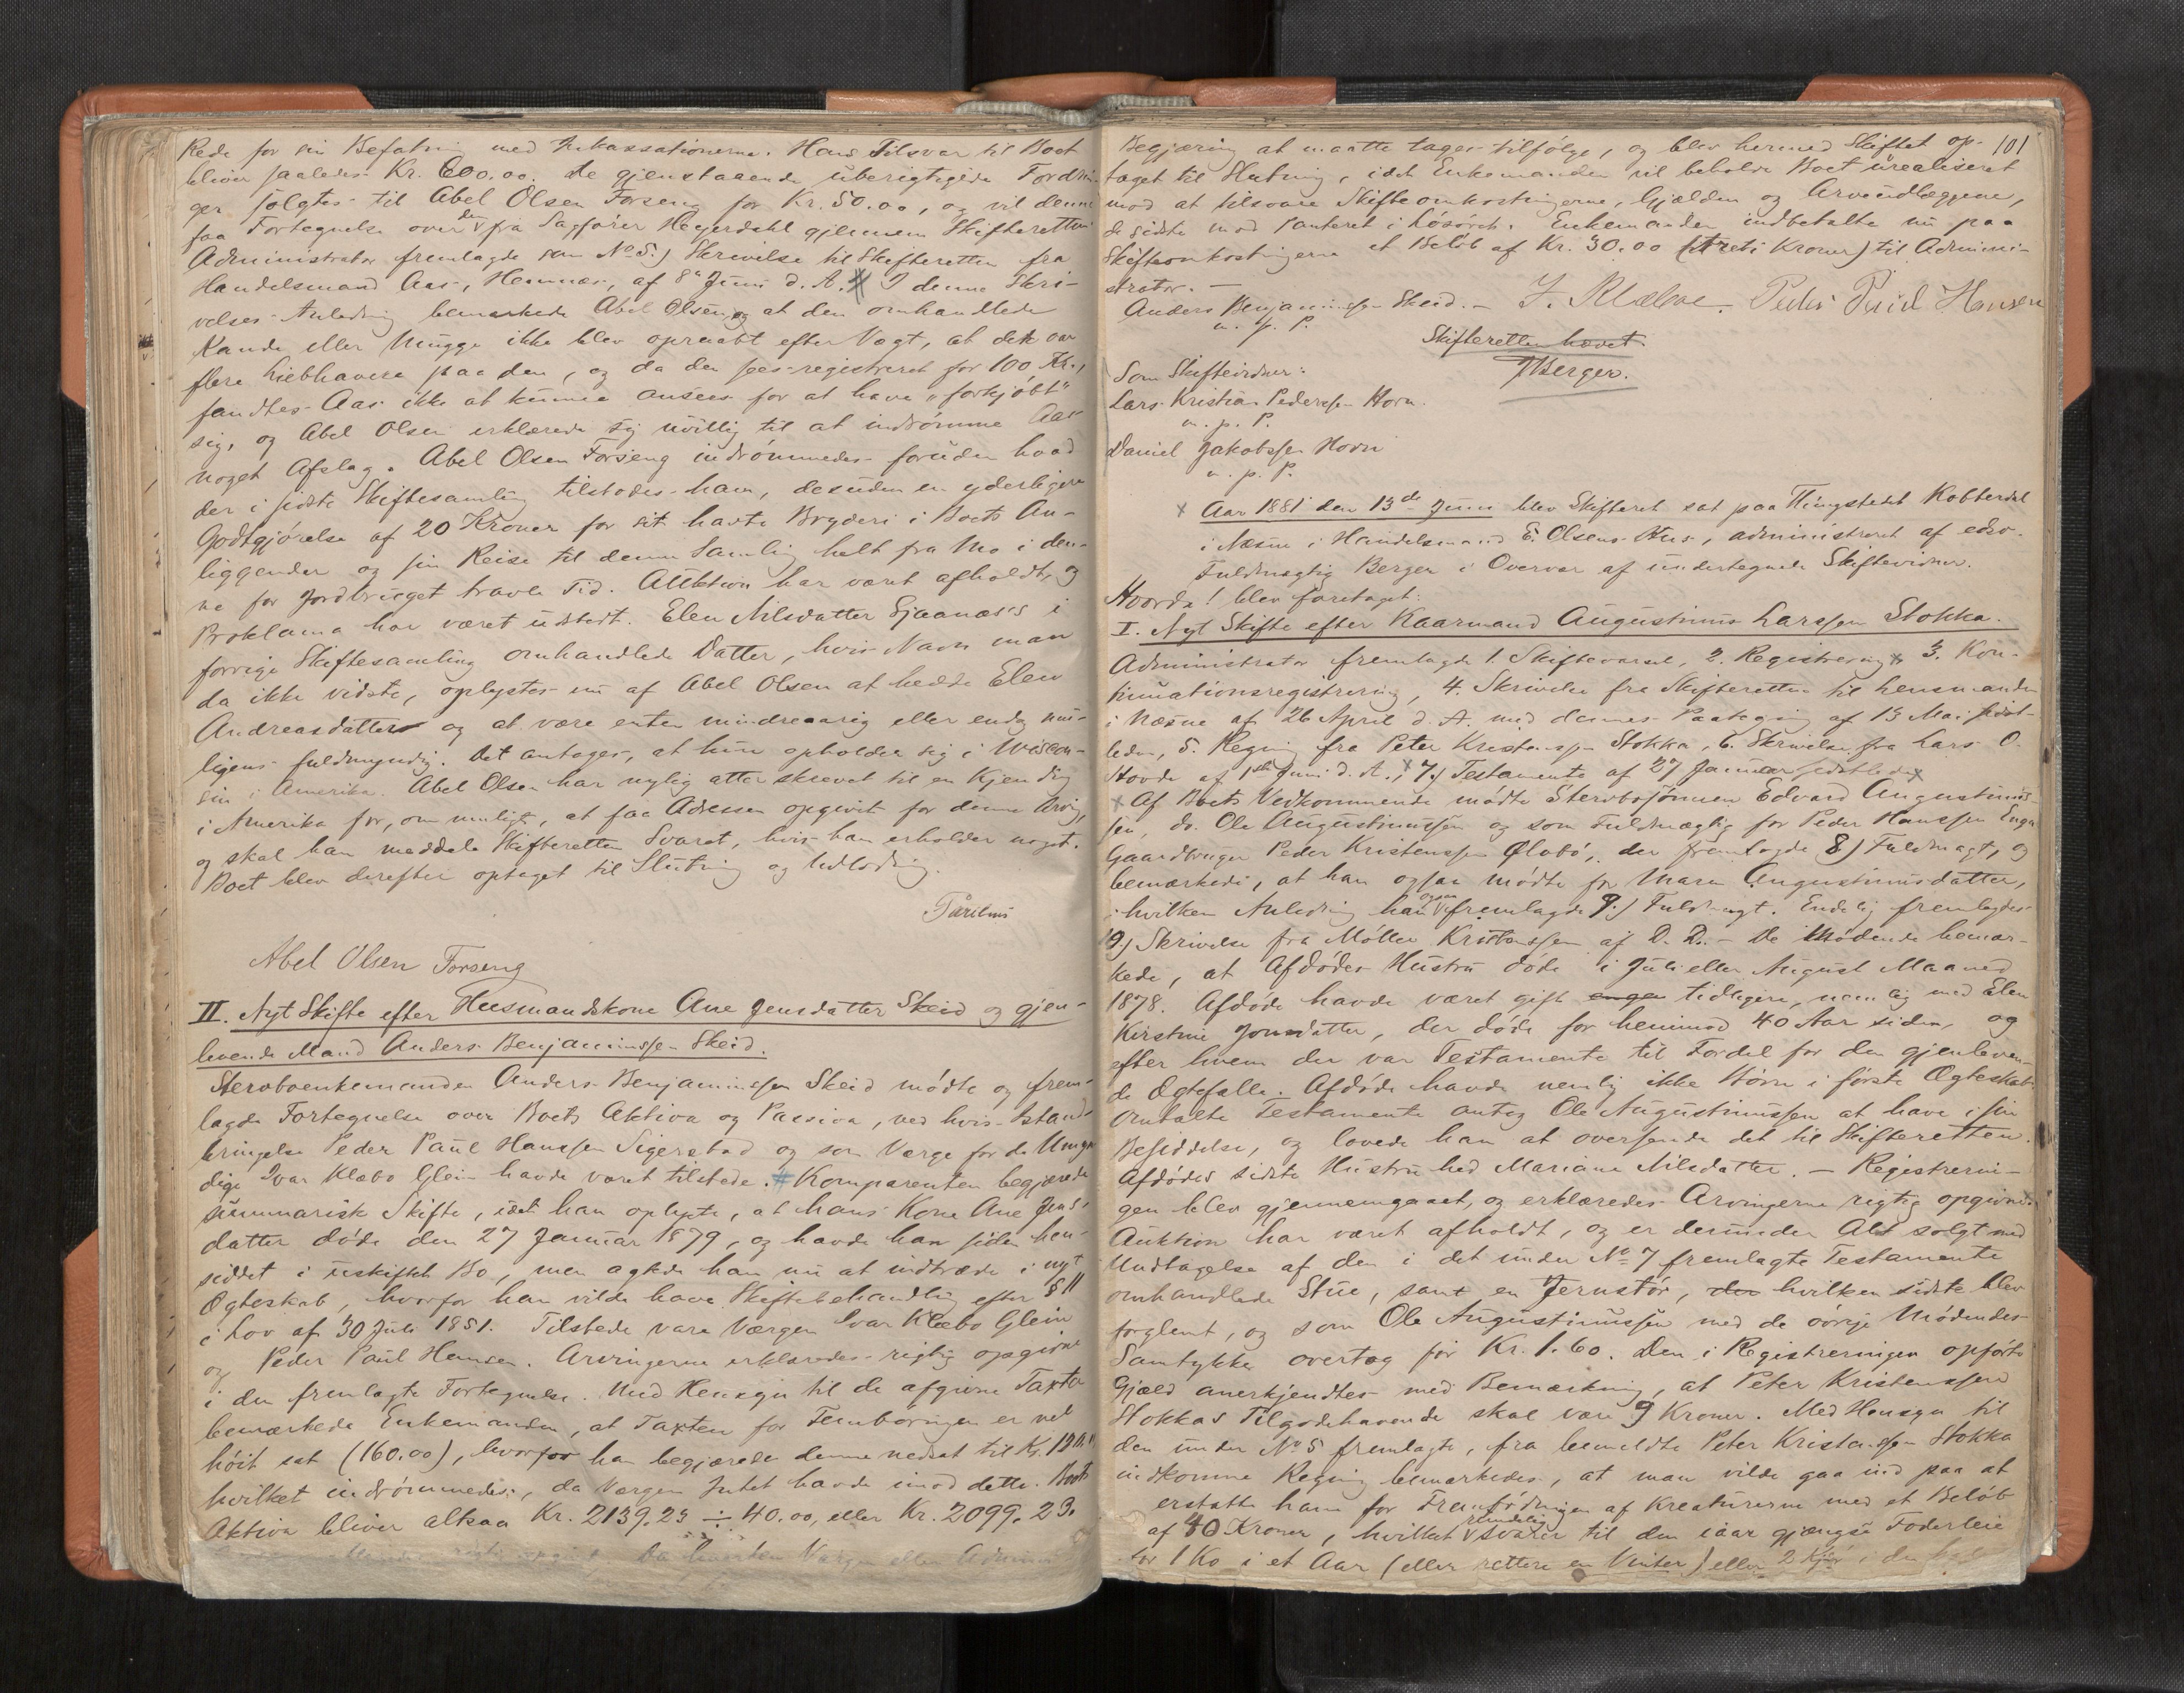 Rede for sin Befatning med Inkassationerne. Hans Tilsvar til Boet
bliver saaledes Kr. 600.00. De gjenstaaende uberigtigede Fordrin-
ger solgtes til Abel Olsen Forseng for Kr. 50.00, og vil denne
faa Fortegnelse over dem fra Sagfører Heyerdahl gjennem Skifteretten
Administrator fremlagde som No 5.) Skrivelse til Skifteretten fra
Handelsmand Aas, Hemnes, af 8de Juni d. A. # I denne Skri-
velses Anledning bemærkede Abel Olsen, at den omhandlede
Kande eller Mugge ikke blev opraabt efter Vægt, at det var
flere Liebhavere paa den, og da den sees registreret for 100 Kr.,
fandtes Aas ikke at kunne ansees for at have "forkjøbt"
sig, og Abel Olsen erklærede sig uvillig til at indrømme Aas
noget Afslag. Abel Olsen Forseng indrømmedes foruden hvad
der i sidste Skiftesamling tilstodes ham, desuden en yderligere
Godtgjørelse af 20 Kroner for sit havte Bryderi i Boets An-
liggender og sin Reise til denne Samling helt fra Mo i den-
ne for Jordbruget travle Tid. Auktion har været afholdt, og
Proklama har været udstedt. Elen Nilsdatter Sjaanæs's i
forrige Skiftesamling omhandlede Datter, hvis Navn man
da ikke vidste, oplystes nu af Abel Olsen at hedde Elen
Andreasdatter og at være enten mindreaarig eller endog mu-
ligens fuldmyndig. Det antages, at hun opholder sig i Wiscon-
sin i Amerika. Abel Olsen har nylig atter skrevet til en Kjending
i Amerika for, om muligt, at faa Adressen opgivet for denne Arving,
og skal han meddele Skifteretten Svaret, hvis han erholder noget.
Boet blev derefter optaget til Slutning og Udlodning.
Abel Olsen Forseng
II. Nyt Skifte efter Husmandskone Ane Jensdatter Skeid og gjen-
levende Mand Anders Benjaminssen Skeid.
Stervboenkemanden Anders Benjaminssen Skeid mødte og frem-
lagde Fortegnelse over Boets Aktiva og Passiva, ved hvis Istand-
bringelse Peder Paul Hanssen Sigerstad og som Værge for de Umyn-
dige Ivar Klæbo Glein havde været tilstede. # Komparenten begjærede
summarisk Skifte, idet han oplyste, at hans Kone Ane Jens-
datter døde den 27 Januar 1879, og havde han siden hen-
siddet i uskiftet Bo, men agtede han nu at indtræde i nyt
Ægteskab, hvorfor han vilde have Skiftebehandling efter § 11
i Lov af 30 Juli 1851. Tilstede vare Værgen Ivar Klæbo Glein
og Peder Paul Hansen. Arvingerne erklæredes rigtig opgivne
i den fremlagte Fortegnelse. Med Hensyn til de afgivne Taxter
bemærkede Enkemanden, at Taxten for Femboringen er vel
høit sat (160.00), hvorfor han begjærede denne nedsat til Kr. 120.00
hvilket indrømmedes, da Værgen Intet havde imod dette. Boets
Aktiva bliver altsaa Kr. 2139.23 ÷ 40.00, eller Kr. 2099.23.
101
Begjæring at maatte tages tilfølge, og blev hermed Skiftet op-
taget til Slutning, idet Enkemanden vil beholde Boet urealiseret
mod at tilsvare Skifteomkostningerne, Gjælden og Arveudlæggene,
de sidste mod Panteret i Løsøret. Enkemanden indbetalte nu paa
Skifteomkostningerne et Beløb af Kr. 30.00 (Treti Kroner) til Admini-
strator. -
Anders Benjaminssen Skeid. - I. Klæboe. Peder Paul Hansen
m. p. P.
Skifteretten hævet.
JBerger.
Som Skiftevidner:
Lars Kristian Pederssen Horn.
m. p. P.
Daniel Jakobssen Horn
m. p. P.
x Aar 1881 den 13de Juni blev Skifteret sat paa Thingstedet Kobberdal
i Næsne i Handelsmand E. Olsens Hus, administreret af edsv.
Fuldmægtig Berger i Overvær af undertegnede Skiftevidner.
Hvorda! blev foretaget:
I. Nyt Skifte efter Kaarmand Augustinus Larssen Stokka.
Administrator fremlagde 1. Skiftevarsel, 2. Registrering, 3. Kon-
tinuationsregistrering, 4. Skrivelse fra Skifteretten til Lensmanden
i Næsne af 26 April d. A. med dennes Paategning af 13 Mai sidst-
leden, 5. Regning fra Peter Kristenssen Stokka, 6. Skrivelse fra Lars O.
Hovde af 1ste Juni d. A., x 7.) Testamente af 27 Januar sidstleden x
x Af Boets Vedkommende mødte Stervbosønnen Edvard Augustinus-
sen, do. Ole Augustinussen og som Fuldmægtig for Peder Hanssen Enga
Gaardbruger Peder Kristenssen Ølvbø, der fremlagde 8) Fuldmagt, og
bemærkede, at han ogsaa mødte for Maren Augustinusdatter,
i hvilken Anledning han ogsaa fremlagde 9.) Fuldmagt. Endelig fremlagdes
10) Skrivelse fra Møller Kristenssen af D. D. - De Mødende bemær-
kede, at Afdødes Hustru døde i Juli eller August Maaned
1878. Afdøde havde været gift tidligere, nemlig med Elen
Kirstine Jonsdatter, der døde for henimod 40 Aar siden, og
efter hvem der var Testamente til Fordel for den gjenleven-
de Ægtefælle. Afdøde havde nemlig ikke Børn i første Ægteskab.
Omtalte Testamente antog Ole Augustinussen at have i sin
Besiddelse, og lovede han at oversende det til Skifteretten.
Afdødes sidste Hustru hed Mariane Nilsdatter. - Registrerin-
gen blev gjennemgaaet, og erklæredes Arvingerne rigtig opgivne.
Auktion har været afholdt, og er derunder Alt solgt med
Undtagelse af den i det under No 7 fremlagte Testamente
omhandlede Stue, samt en Jernstør, hvilken sidste blev
forglemt, og som Ole Augustinussen med de øvrige Mødendes
Samtykke overtog for Kr. 1.60. Den i Registreringen opførte
Gjæld anerkjendtes med Bemærkning, at Peter Kristenssen
Stokkas Tilgodehavende skal være 9 Kroner. Med Hensyn til
den under No 5 fremlagte, fra bemeldte Peter Kristenssen Stokka
indkomne Regning bemærkedes, at man vilde gaa ind paa at
erstatte ham for Fremfødningen af Kreaturerne med et Beløb
af 40 Kroner, hvilket rundelig svarer til den iaar gjængse Foderleie
for 1 Ko i et Aar (eller rettere en Vinter) eller 2 Kjør i den